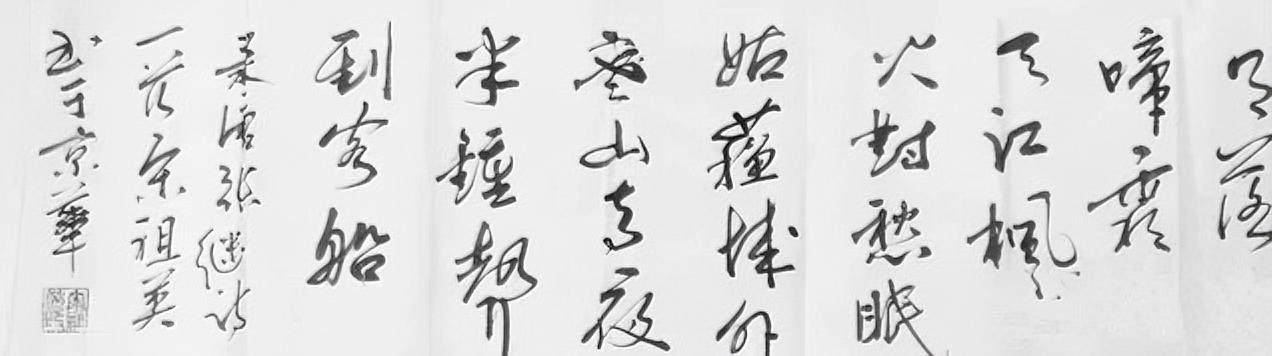 月落
啼霜
天江楓
火對愁眠
姑蘇城外
寒山寺夜
半鐘聲
到客船
录唐張継诗
一首宋祖英
书于京華